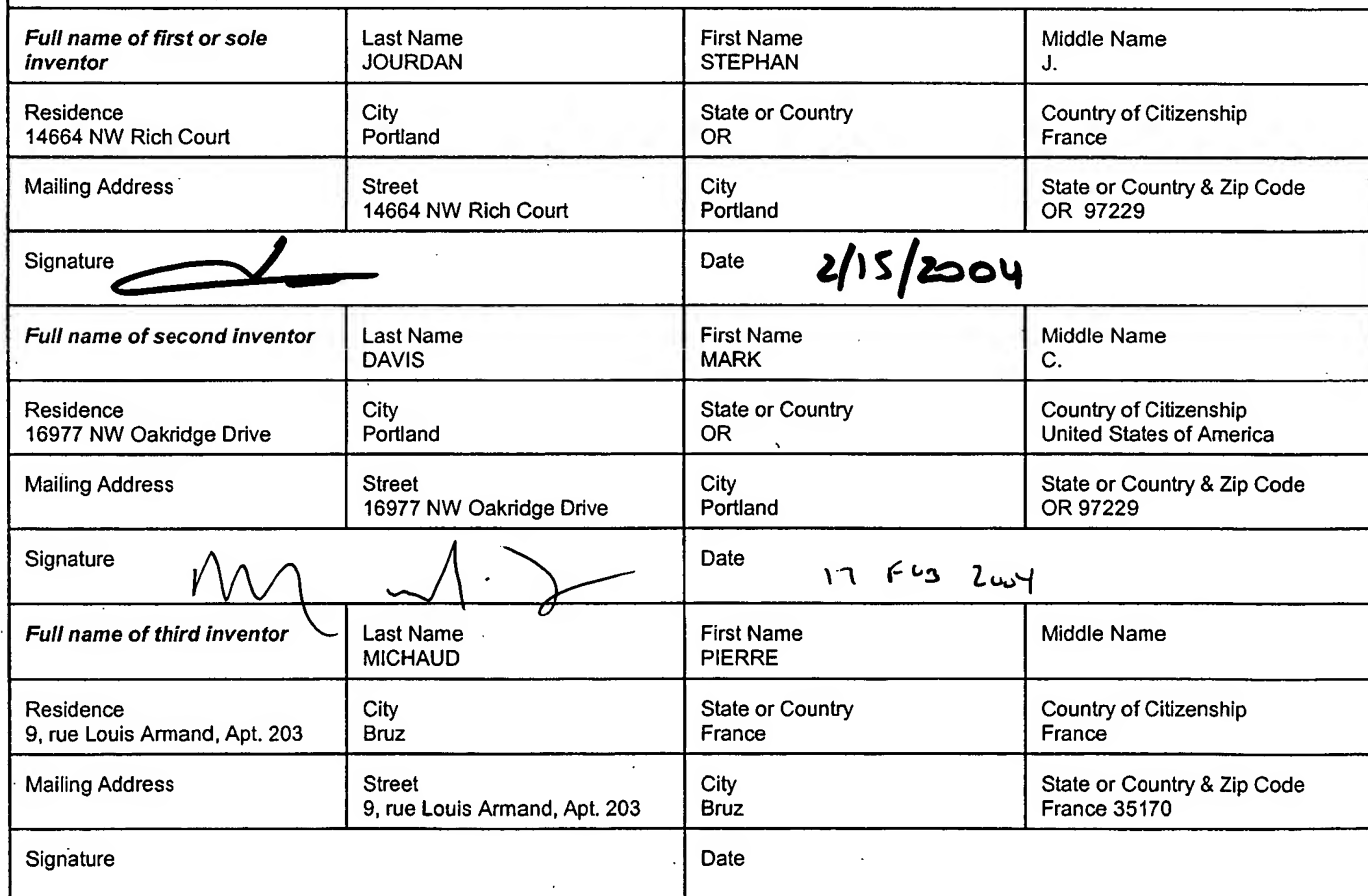 Full name of first or sole inventor
Last Name
JOURDAN
First Name
STEPHAN
Middle Name
J.
Residence
14664 NW Rich Court
City
Portland
State or Country
OR
Country of Citizenship
France
Mailing Address
Street
14664 NW Rich Court
City
Portland
State or Country & Zip Code
OR 97229
Signature
Date 2/15/2004
Full name of second inventor
Last Name
DAVIS
First Name
MARK
Middle Name
C.
Residence
16977 NW Oakridge Drive
City
Portland
State or Country
OR
Country of Citizenship
United States of America
Mailing Address
Street
16977 NW Oakridge Drive
City
Portland
State or Country & Zip Code
OR 97229
Signature
Date 17 FEB 2004
Full name of third inventor
Last Name
MICHAUD
First Name
PIERRE
Middle Name
Residence
9, rue Louis Armand, Apt. 203
City
Bruz
State or Country
France
Country of Citizenship
France
Mailing Address
Street
9, rue Louis Armand, Apt. 203
City
Bruz
State or Country & Zip Code
France 35170
Signature
Date